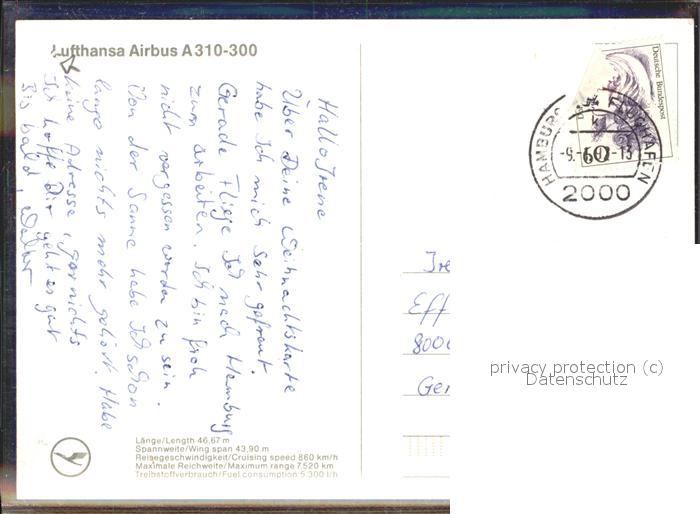 Lufthansa Airbus A310-300
Hallo Irene
Über Deine Weihnachtskarte
habe Ich mich sehr gefreut.
Gerade Fliege Ich nach Hamburg
zum arbeiten. Ich bin froh
nicht vergessen worden zu sein.
Von der Sanne habe Ich schon
lange nichts mehr gehört. Habe
keine Adresse, gar nichts
Ich hoffe Dir geht es gut
Bis bald,
Länge/Length 46,67 m
Spannweite/Wing span 43,90 m
Reisegeschwindigkeit/Cruising speed 860 km/h
Maximale Reichweite/Maximum range 7.520 km
Treibstoffverbrauch/Fuel consumption 5.300 l/h
Deutsche Bundespost
60
HAMBURG FLUGHAFEN
2000
Ire
Eff
800
Ger
privacy protection (c)
Datenschutz